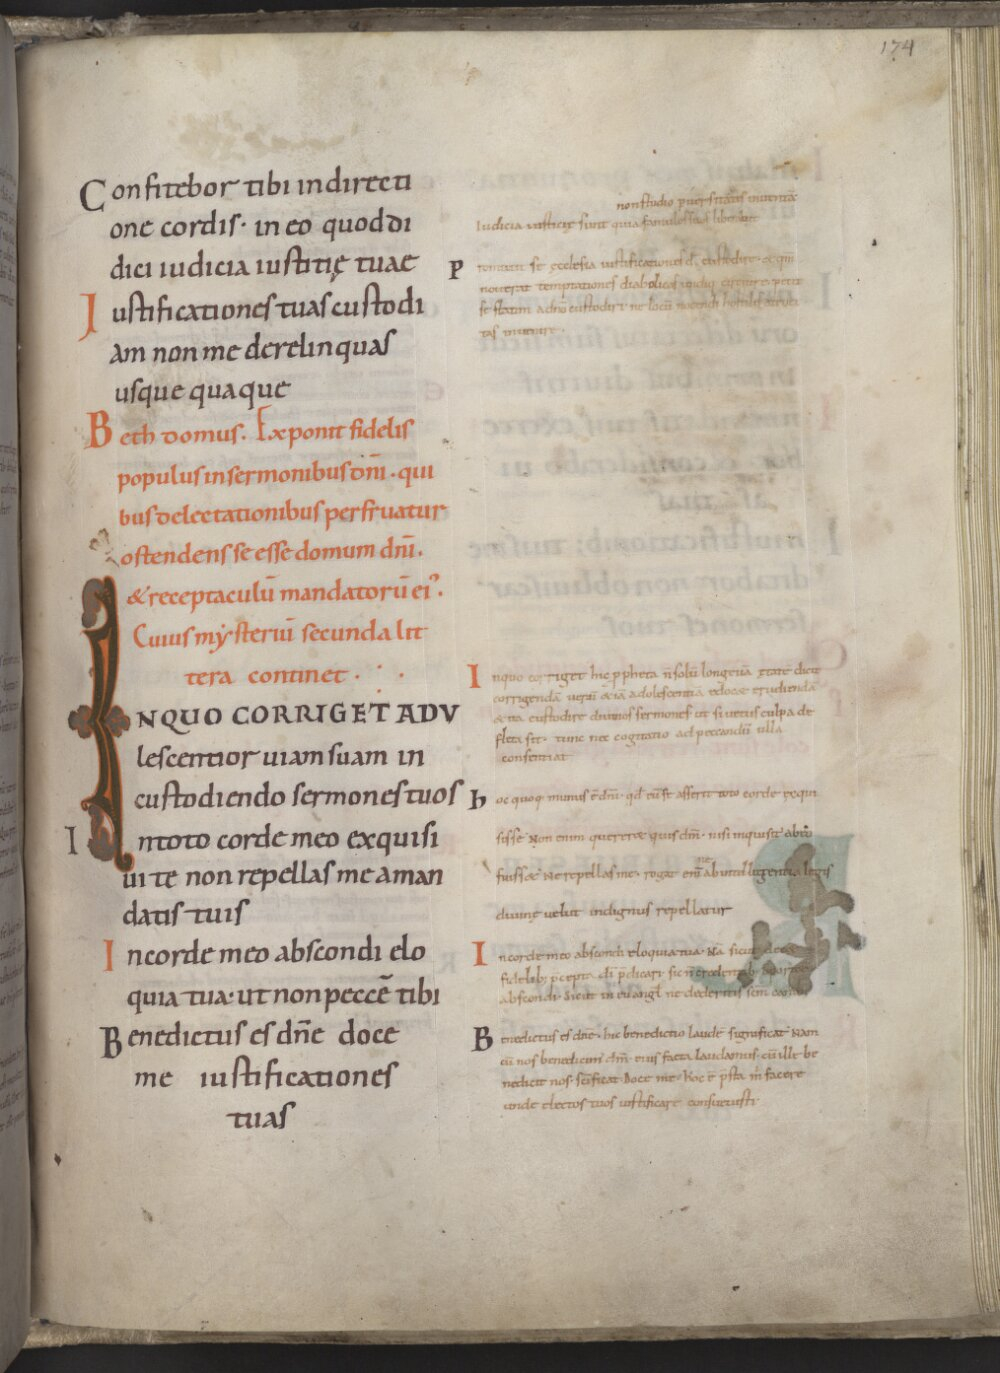 174
Confitebor tibi indirecti
one cordis· in eo quoddi
dici iudicia iustitię tuae
Iustificationes tuas custodi
am non me derelinquas
usque quaque
Beth domus. Exponit fidelis
populus insermonibus dn̄i· qui
bus delectationibus perfruatur
ostendens se esse domum dn̄i.
&receptaculū mandatorū ei⁹.
Cuius mysteriū secunda lit
tera continet ·
INQUO CORRIGET ADU
lescentior uiam suam in
custodiendo sermones tuos
Intoto corde meo exquisi
ui te non repellas me aman
datis tuis
Incorde meo abscondi elo
quia tua· ut non peccē tibi
Benedictus es dn̄e doce
me iustificationes
tuas
non studio puersitatis
Iudicia iustitię sunt quia famulos suos
P ęcclesia iustificationes custodire· & quia
nouerat temptationes diabolicas
se statim adn̄o custodiri ne locū nocendi
tas inuenire·
Inquo corriget hic ppheta n̄ solū longeuā ętatē dicit
corrigendā uerū &iā adolescentiā edoc& erudiendā
& ita custodire diuinos sermones ut si uetus culpa de
fleta sit· tunc nec cogitatio ad peccandū ulla
consentiat
hoc quoq; munus ē dn̄i· qd̄ toto corde exqui
sisse Non enim quereret quis dn̄m· nisi inquisit ab eo
fuiss& Ne repellas me· rogat enī ne ab intellegentia legis
diuinę uelut indignus repellatur
Incorde meo abscondi eloquia tua· Nā sicut
fidelib; pcepta dī p̄dicari sic n̄ credentib;
abscondi· dicit in euangl̄ ne dederitis scm̄
Benedictus es dn̄e· hic benedictio laudē significat Nam
cū nos benedicim̄ dn̄m· eius facta laudamus· cū ille be
nedicit nos· sc̄ificat Doce me· hoc ē p̄sta m̄ facere
unde electos tuos iustificare consueuisti